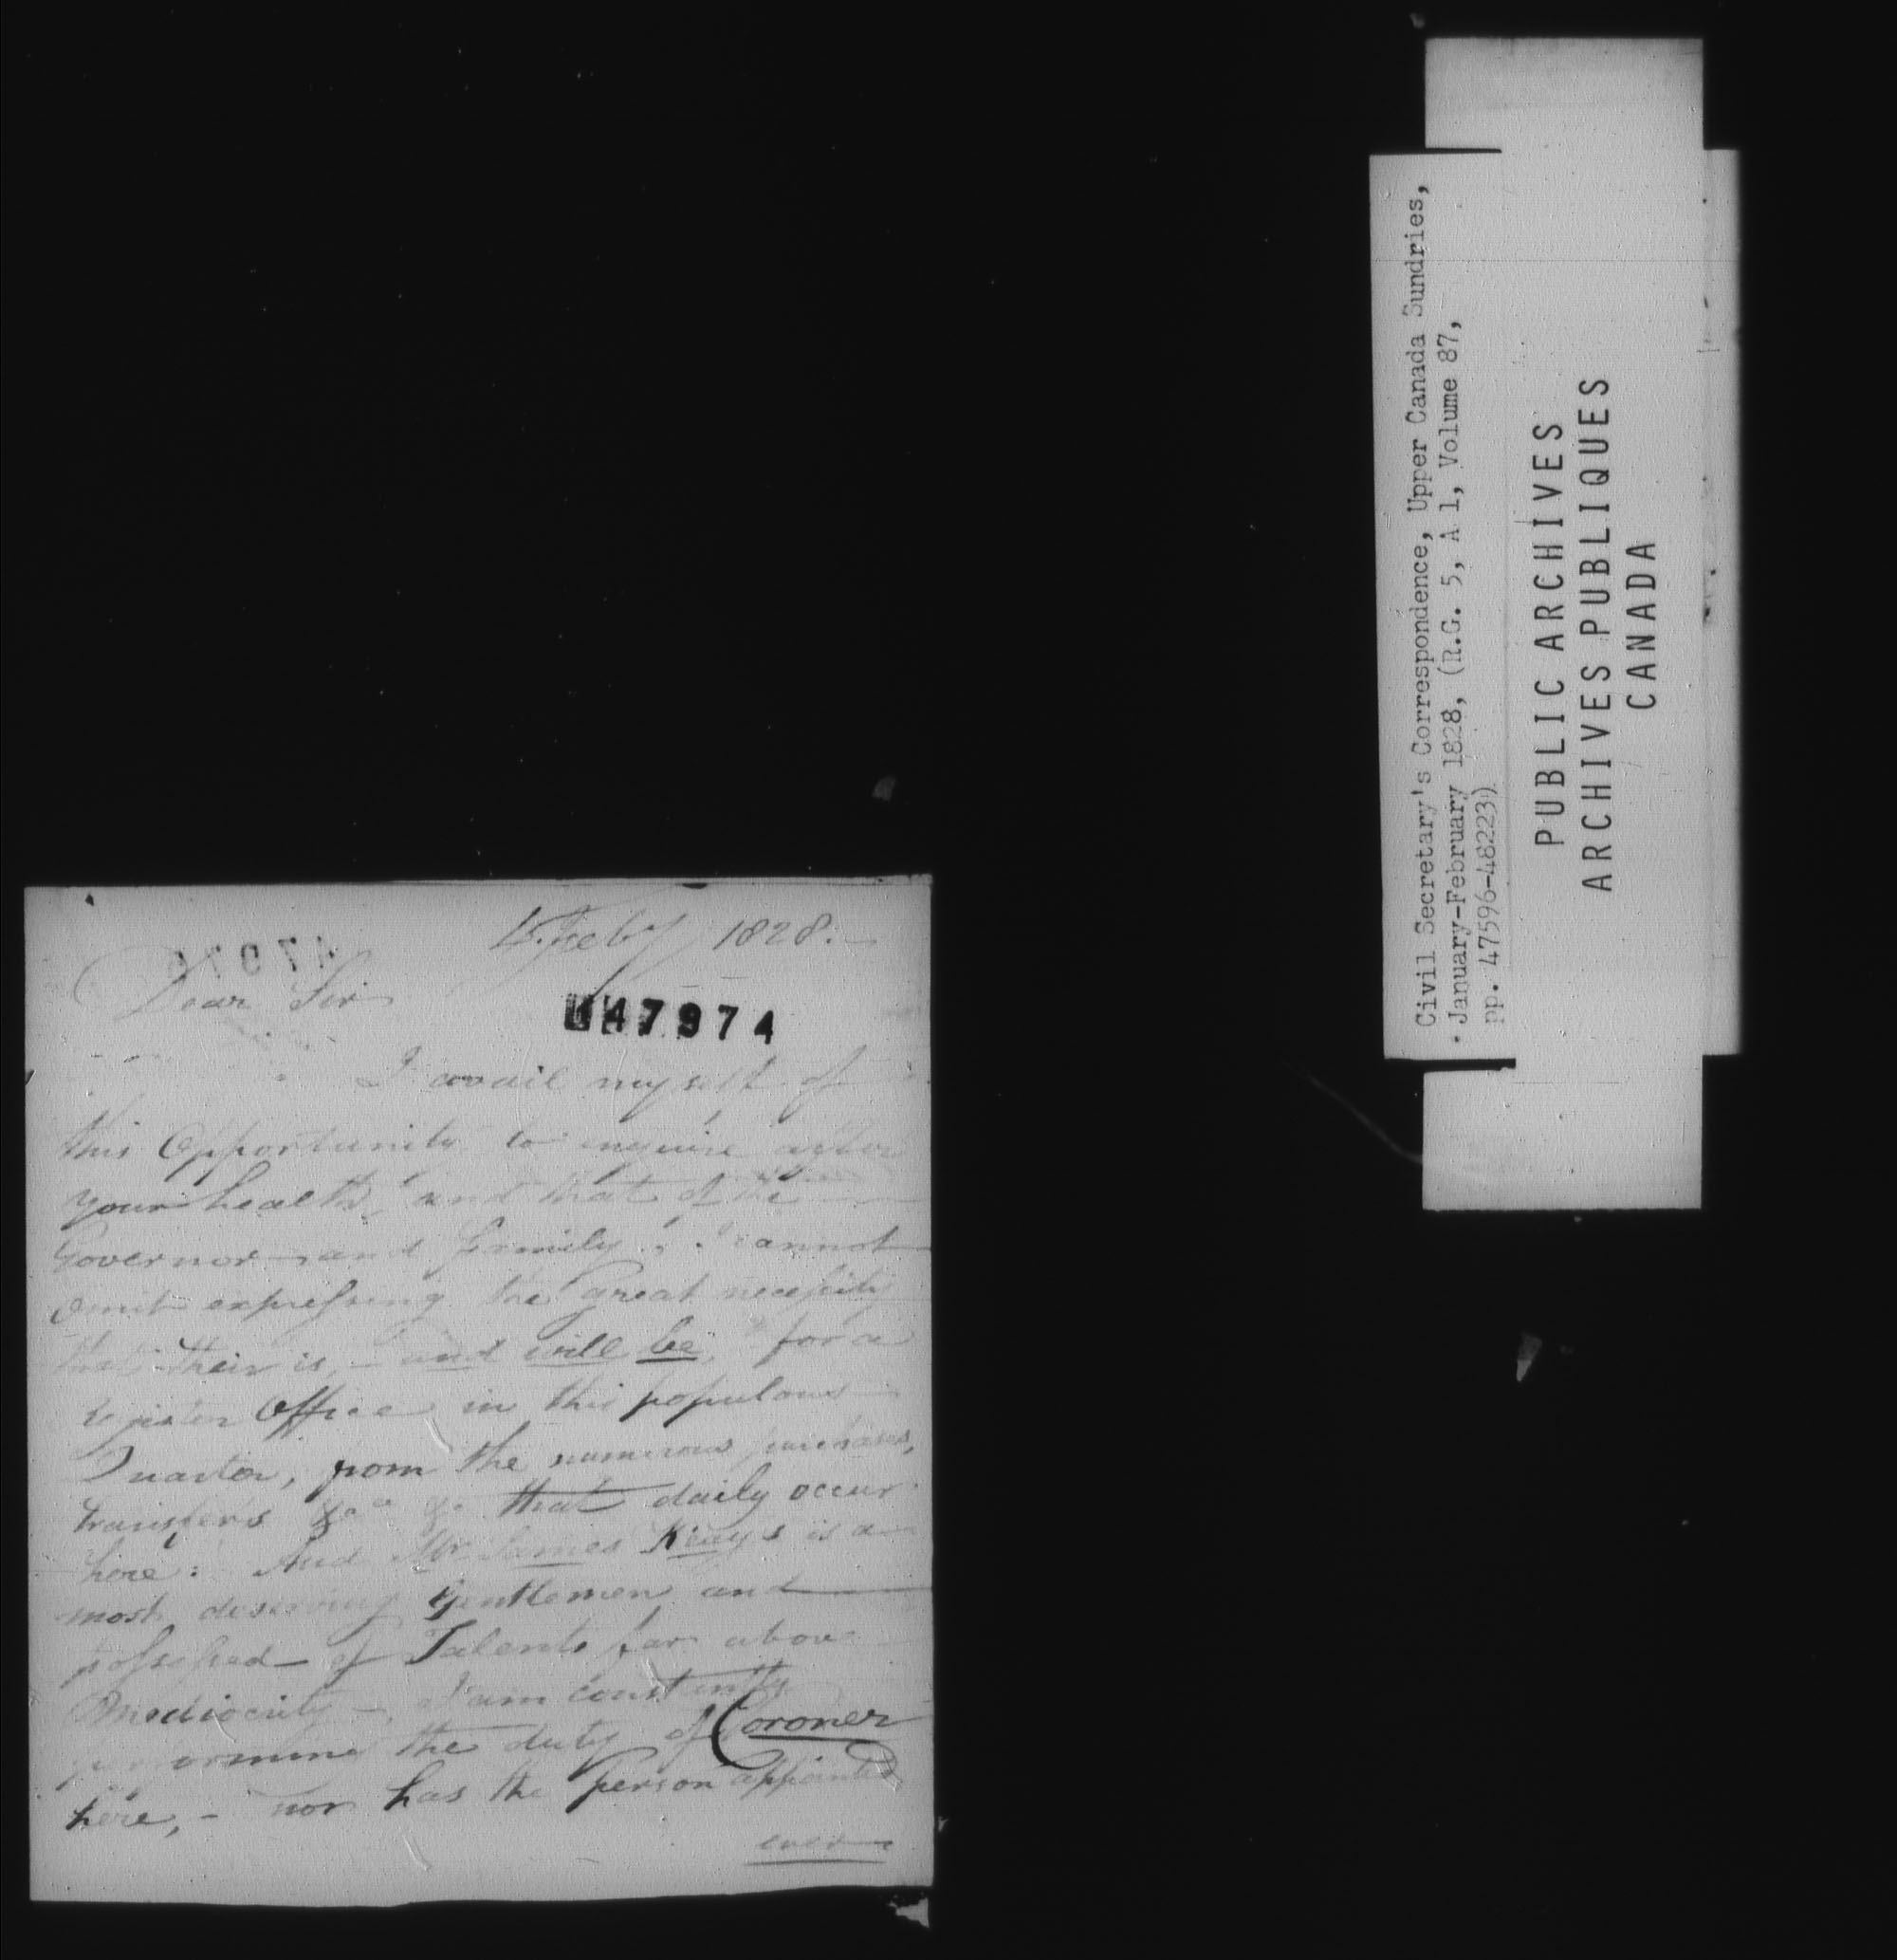 Feby 1828.—
Dear Sir
47974
I avail myself of
this Opportunity to enquire after
your health, and that of the
Governor—and family, I cannot
omit expressing the great necessity
that their is,— and will be, for a
Register Office in this populous
Quarter, from the numerous purchases,
transfers &ca &c that daily occur
here: And Mr James Keays is a
most deserving Gentlemen and
possessed— of Talents far above
Mediocrity—, I am constantly
performing the duty of Coroner
here,— nor has the person appointed
ever
Civil Secretary's Correspondence, Upper Canada Sundries,
January-February 1828, (R.G. 5, A 1, Volume 87,
pp. 47596-48223)
PUBLIC ARCHIVES
ARCHIVES PUBLIQUES
CANADA